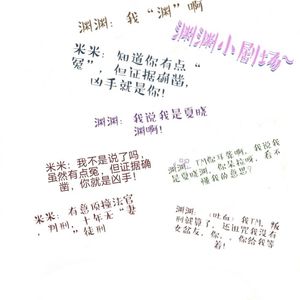 渊渊：我“渊”啊
渊渊小剧场~
米米：知道你有点“
冤”，但证据确凿，
凶手就是你!
渊渊：我说我是夏晓
渊啊!
米米：我不是说了吗，
虽然有点冤，但证据确
凿，你就是凶手!
渊渊：TM你耳聋啊，我说我
是夏晓渊，
看不
懂我的意思?
米米：有意顶撞法官
，判刑，十年无“妻
”徒刑
渊渊：（吐血）我TM，叛
刑就算了，还诅咒我没有
女盆友，你，你给我等
着!